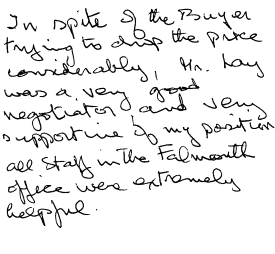 In spite of the Buyer
trying to drop the price
considerably, Mr. Lay
was a very good
negotiator, and very
supportive of my position
all Staff in the Falmouth
office were extremely
helpful.